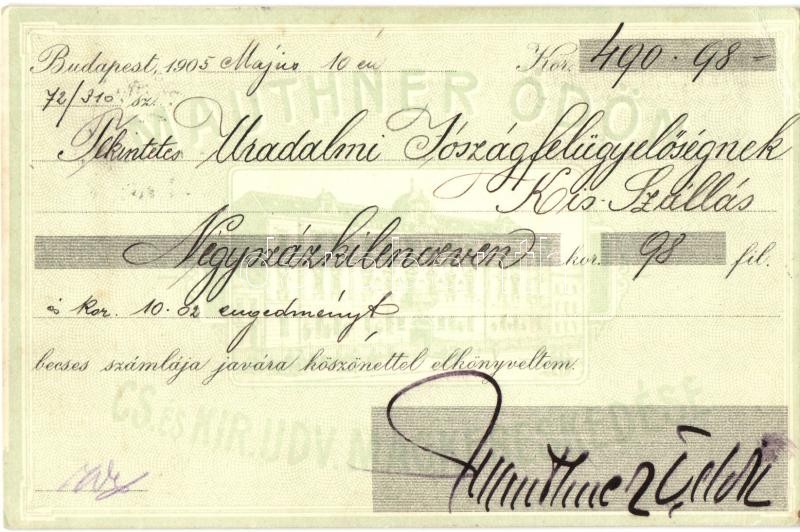 Budapest, 1905 Május 10 én Kor. 490.98-
72/310. sz.
MAUTHNER ÖDÖN
Tekintetes Uradalmi Jószágfelügyelőségnek
Kis-Szállás
Négyszázkilenczven kor. 98 fil.
és kor. 10.02 engedményt
becses számlája javára köszönettel elkönyveltem.
CS. ÉS KIR. UDV. MAGKERESKEDÉSE
Mauthner Ödön